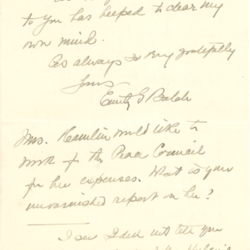 to you has helped to clear my
own mind.
As always very gratefully
yours
Emily G Balch
Mrs. Hamlin would like to
work for the Peace Council
for her expenses. What is your
unvarnished report on her?
I see I did not tell you